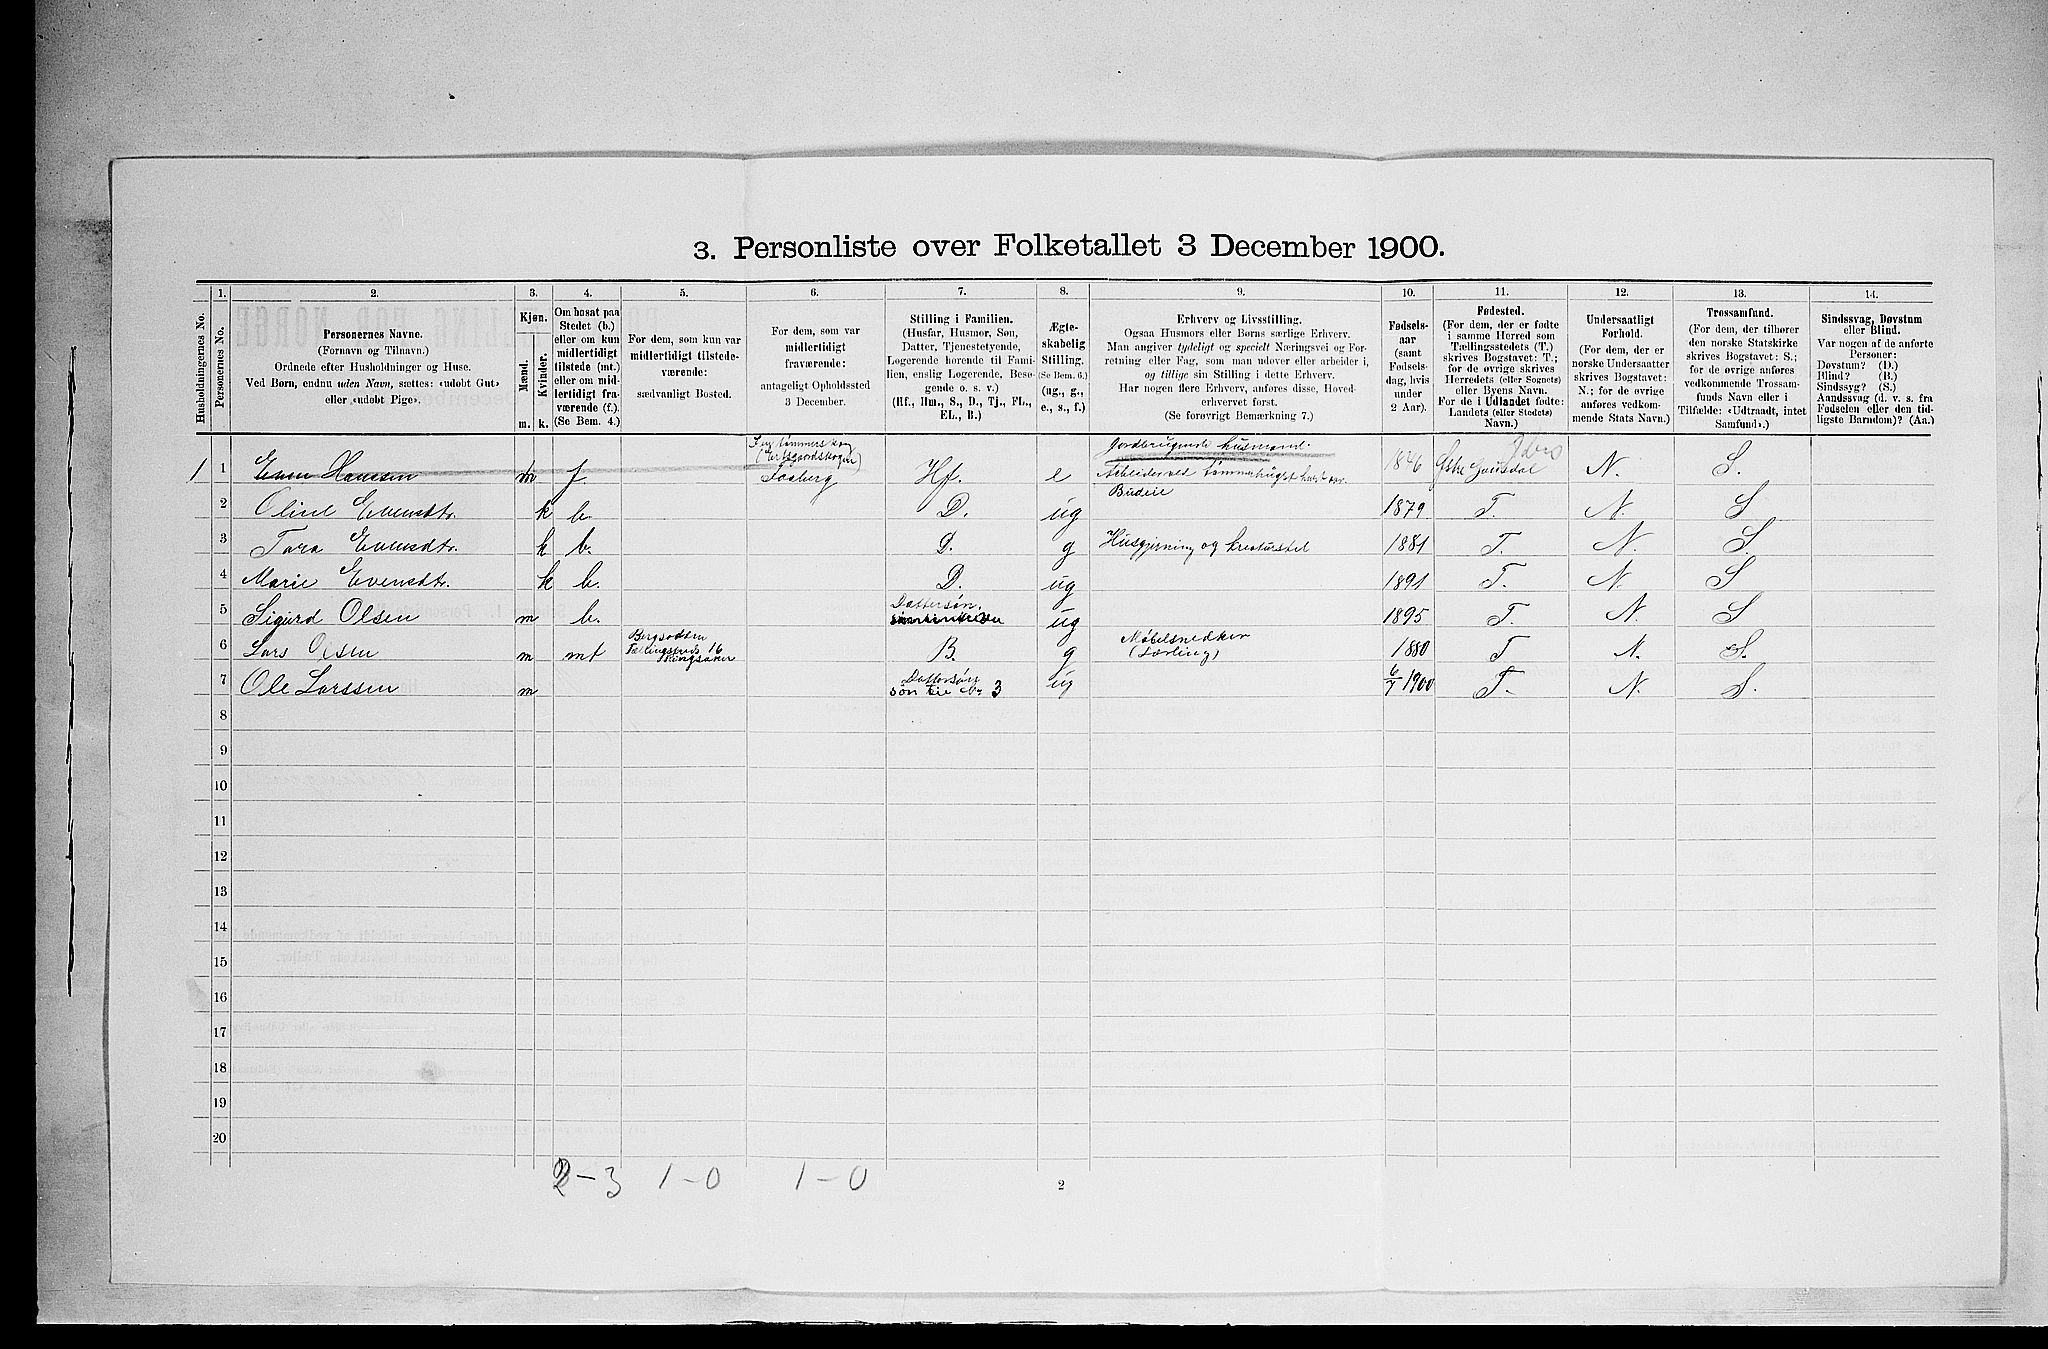 3. Personliste over Folketallet 3 December 1900.
Husholdningernes No.
1.
Personernes No.
2.
Personernes Navne.
(Fornavn og Tilnavn.)
Ordnede efter Husholdninger og Huse.
Ved Børn, endnu uden Navn, sættes: «udøbt Gut»
eller «udøbt Pige».
3.
Kjøn.
Mænd.
Kvinder.
m.
k.
4.
Om bosat paa
Stedet (b.)
eller om kun
midlertidigt
tilstede (mt.)
eller om mid-
lertidigt fra-
værende (f.).
(Se Bem. 4.)
5.
For dem, som kun var
midlertidigt tilstede-
værende:
sædvanligt Bosted.
6.
For dem, som var
midlertidigt
fraværende:
antageligt Opholdssted
3 December.
7.
Stilling i Familien.
(Husfar, Husmor, Søn,
Datter, Tjenestetyende,
Logerende hørende til Fami-
lien, enslig Logerende, Besø-
gende o. s. v.)
(Hf., Hm., S., D., Tj., FL.,
EL., B.)
8.
Ægte-
skabelig
Stilling.
(Se Bem. 6.)
(ug., g.,
e., s., f.)
9.
Erhverv og Livsstilling.
Ogsaa Husmors eller Børns særlige Erhverv.
Man angiver tydeligt og specielt Næringsvei og For-
retning eller Fag, som man udøver eller arbeider i,
og tillige sin Stilling i dette Erhverv.
Har nogen flere Erhverv, anføres disse, Hoved-
erhvervet først.
(Se forøvrigt Bemærkning 7.)
10.
Fødsels-
aar
(samt
Fødsels-
dag, hvis
under
2 Aar).
11.
Fødested.
(For dem, der er fødte
i samme Herred som
Tællingsstedets (T.)
skrives Bogstavet: T.;
for de øvrige skrives
Herredets (eller Sognets)
eller Byens Navn.
For de i Udlandet fødte:
Landets (eller Stedets)
Navn.)
12.
Undersaatligt
Forhold.
(For dem, der er
norske Undersaatter
skrives Bogstavet:
N.; for de øvrige
anføres vedkom-
mende Stats Navn.)
13.
Trossamfund.
(For dem, der tilhører
den norske Statskirke
skrives Bogstavet: S.;
for de øvrige anføres
vedkommende Trossam-
funds Navn eller i
Tilfælde: «Udtraadt, intet
Samfund».)
14.
Sindssvag, Døvstum
eller Blind.
Var nogen af de anførte
Personer:
Døvstum? (D.)
Blind? (B.)
Sindssyg? (S.)
Aandssvag (d. v. s. fra
Fødselen eller den tid-
ligste Barndom)? (Aa.)
Jordbrugende husmand.
1 1 Even Hansen m f Faaberg Hf. e Arbeider ved tømmerhugst 1846 Østre Gausdal N. S.
Budeie
2 Oline Evensdtr. k b. D. ug 1879 T. N. S
3 Tara Evensdtr. k b. D. g Husgjerning og kreaturstel 1881 T. N. S.
4 Marie Evensdtr. k b. D. ug 1891 T. N. S
Dattersøn.
5 Sigurd Olsen m b. ug 1895 T. N. S
Møbelsnedker
6 Lars Olsen m mt Ringsaker B. g (Lærling) 1880 T N. S.
Dattersøn
7 Ole Larssen m søn til No 3 ug 6/7 1900 T. N. S.
8
9
10
11
12
13
14
15
16
17
18
19
20
2-3 1-0 1-0
2